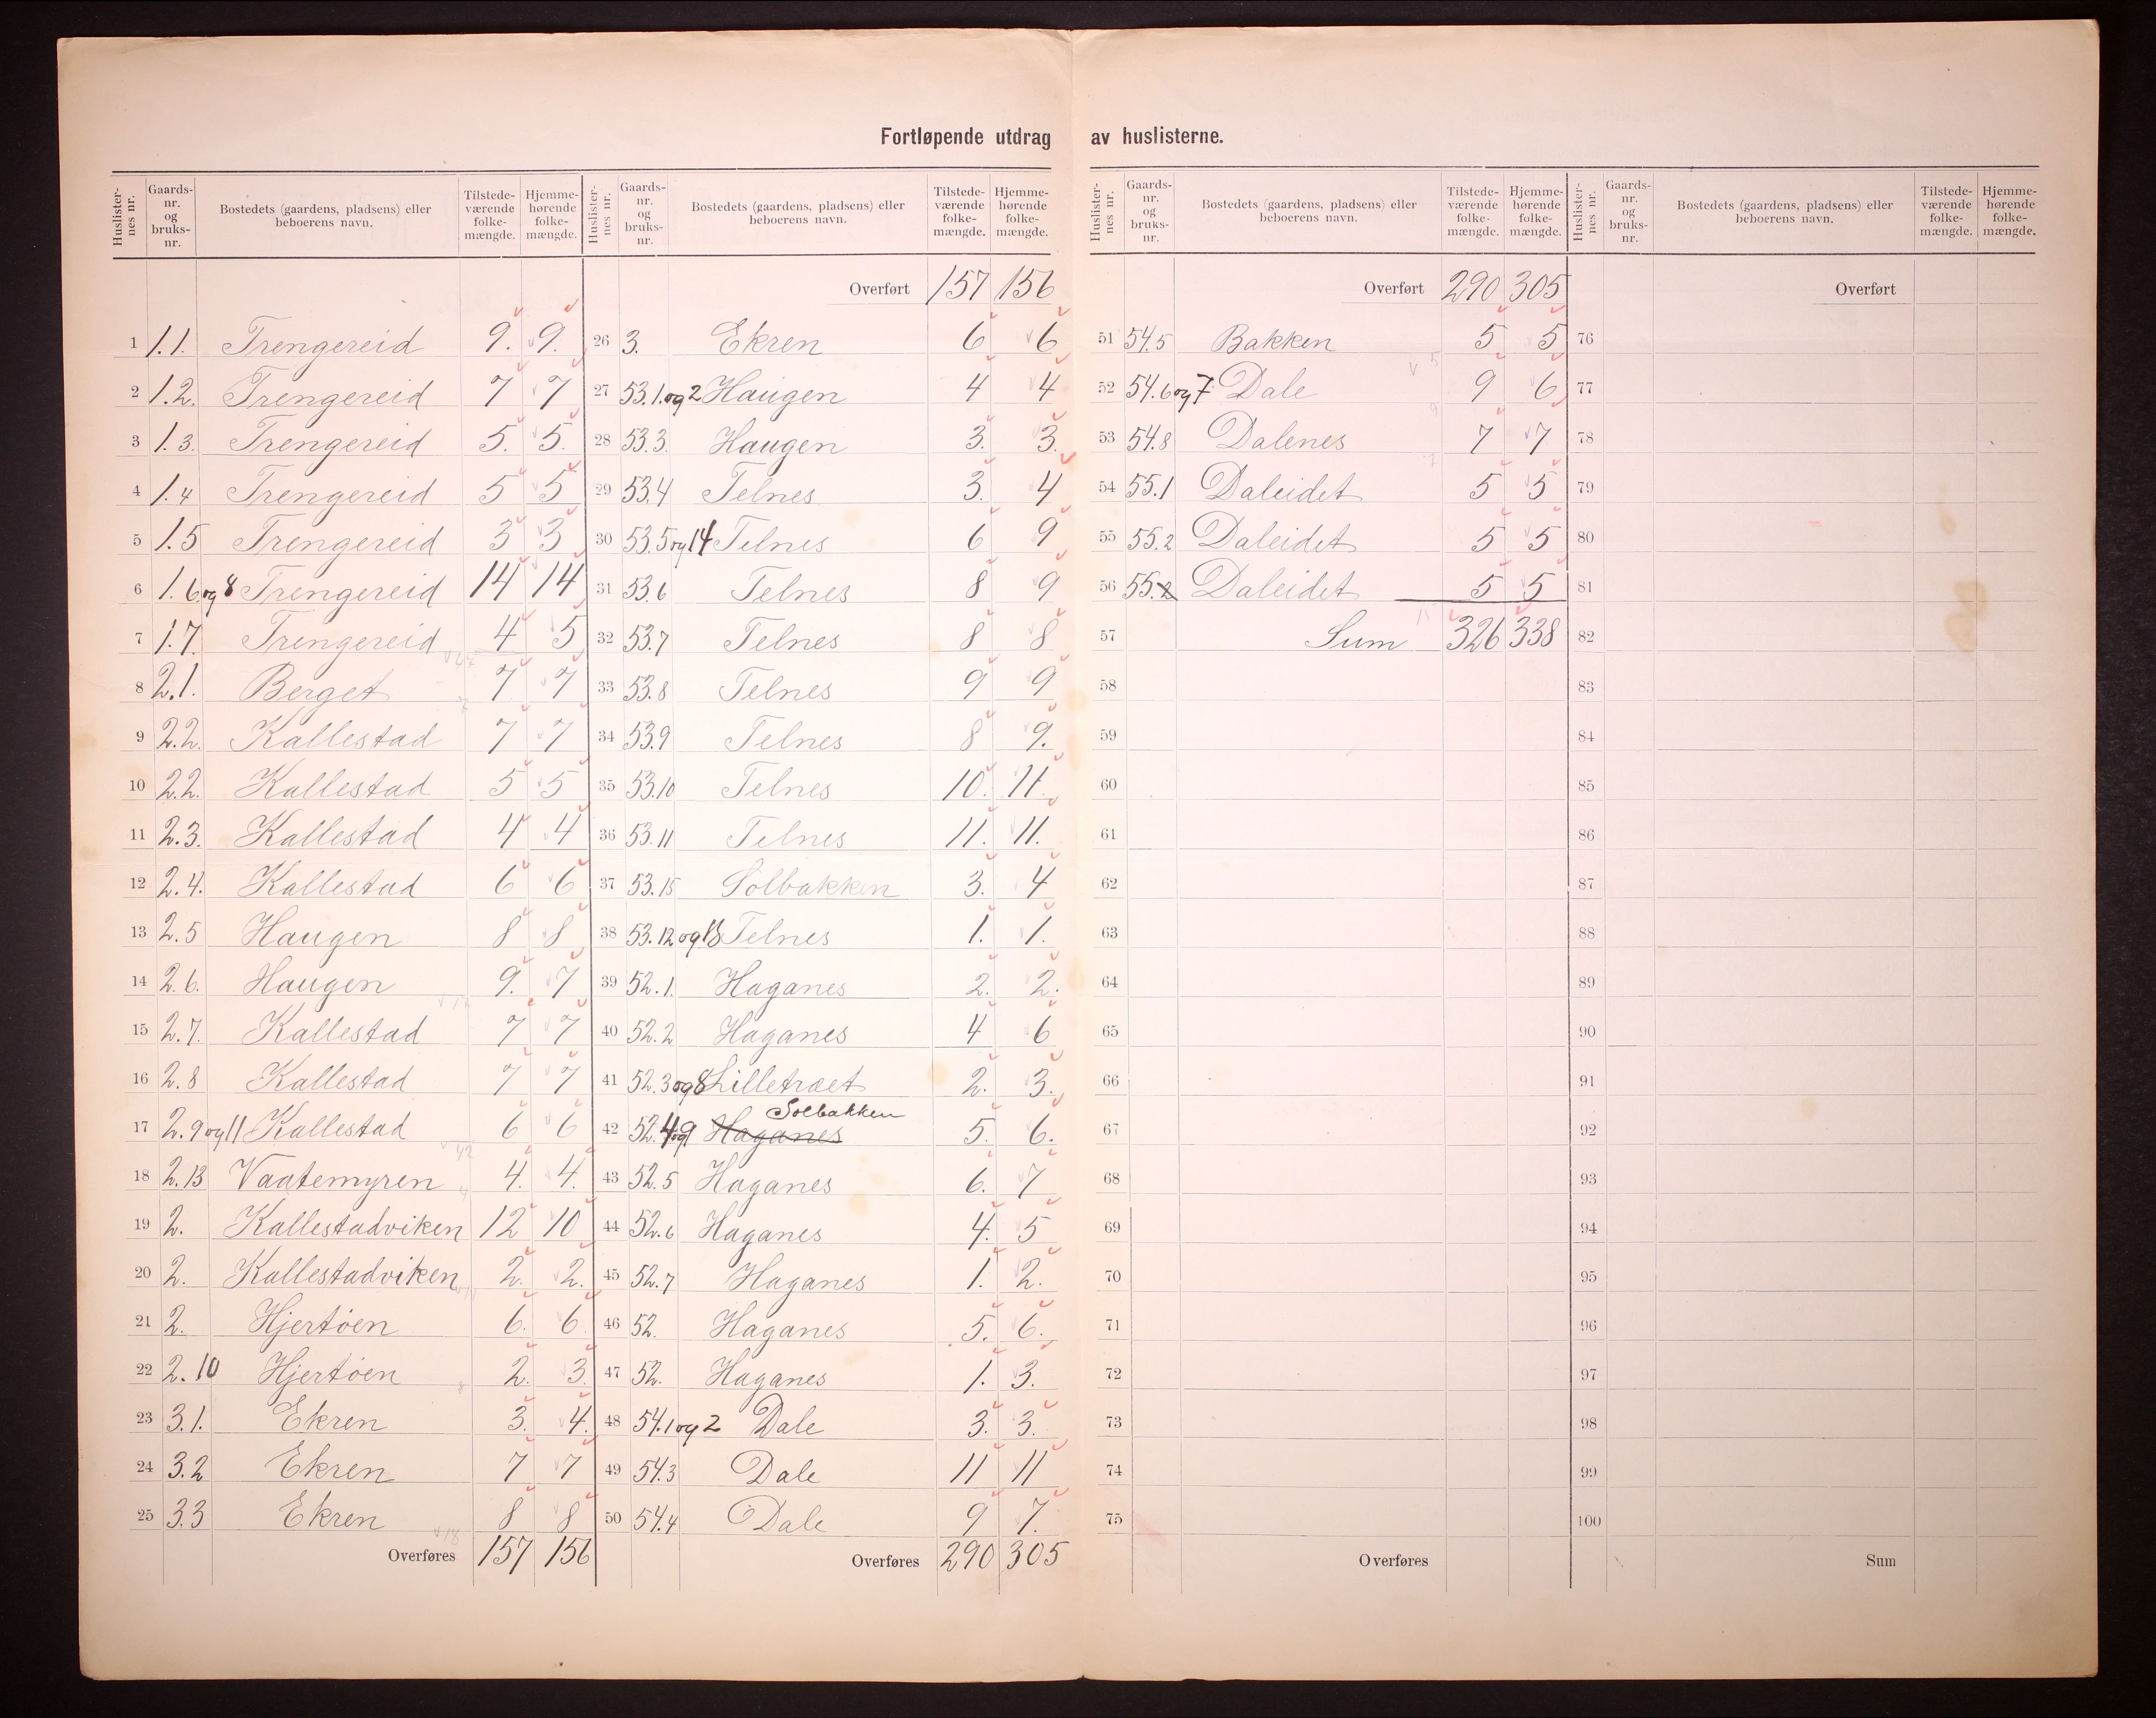 Fortløpende utdrag av huslisterne.
Huslisternes nr. Gaards-nr. og bruks-nr. Bostedets (gaardens, pladsens) eller beboerens navn. Tilstede-værende folke-mængde. Hjemme-hørende folke-mængde.
1 1.1. Trengereid 9. 9.
2 1.2. Trengereid 7 7
3 1.3. Trengereid 5. 5.
4 1.4 Trengereid 5 5
5 1.5 Trengereid 3 3
6 1.6 og 8 Trengereid 14 14
7 1.7. Trengereid 4 5
8 2.1. Berget 7 7
9 2.2. Kallestad 7 7
10 2.2. Kallestad 5 5
11 2.3. Kallestad 4 4
12 2.4. Kallestad 6 6
13 2.5 Haugen 8 8
14 2.6. Haugen 9. 7
15 2.7. Kallestad 7 7
16 2.8 Kallestad 7 7
17 2.9 og 11 Kallestad 6 6
18 2.13 Vaatemyren 4. 4.
19 2. Kallestadviken 12 10
20 2. Kallestadviken 2. 2.
21 2. Hjertøen 6. 6.
22 2.10 Hjertøen 2. 3.
23 3.1. Ekren 3. 4.
24 3.2 Ekren 7 7
25 3.3 Ekren 8 8
Overføres 157 156
Huslisternes nr. Gaards-nr. og bruks-nr. Bostedets (gaardens, pladsens) eller beboerens navn. Tilstede-værende folke-mængde. Hjemme-hørende folke-mængde.
Overført 157 156
26 3. Ekren 6 6
27 53.1. og 2 Haugen 4 4
28 53.3. Haugen 3. 3.
29 53.4 Telnes 3. 4
30 53.5 og 14 Telnes 6 9
31 53.6 Telnes 8 9
32 53.7 Telnes 8 8
33 53.8 Telnes 9 9
34 53.9 Telnes 8 9.
35 53.10 Telnes 10. 11.
36 53.11 Telnes 11. 11.
37 53.15 Solbakken 3. 4
38 53.12 og 13 Telnes 1. 1.
39 52.1. Haganes 2. 2.
40 52.2 Haganes 4 6
41 52.3 og 8 Lilletræet 2. 3.
Solbakken
42 52.4 og 9 Haganes 5. 6.
43 52.5 Haganes 6. 7
44 52.6 Haganes 4. 5
45 52.7 Haganes 1. 2.
46 52. Haganes 5. 6.
47 52. Haganes 1. 3.
48 54.1 og 2 Dale 3. 3.
49 54.3 Dale 11 11
50 54.4 Dale 9 7.
Overføres 290 305
Huslisternes nr. Gaards-nr. og bruks-nr. Bostedets (gaardens, pladsens) eller beboerens navn. Tilstede-værende folke-mængde. Hjemme-hørende folke-mængde.
Overført 290 305
51 54.5 Bakken 5 5
52 54.6 og 7 Dale 9 6
53 54.8 Dalenes 7 7
54 55.1 Daleidet 5 5
55 55.2 Daleidet 5 5
56 55.2 Daleidet 5 5
57 Sum 326 338
58
59
60
61
62
63
64
65
66
67
68
69
70
71
72
73
74
75
Overføres
Huslisternes nr. Gaards-nr. og bruks-nr. Bostedets (gaardens, pladsens) eller beboerens navn. Tilstede-værende folke-mængde. Hjemme-hørende folke-mængde.
Overført
76
77
78
79
80
81
82
83
84
85
86
87
88
89
90
91
92
93
94
95
96
97
98
99
100
Sum